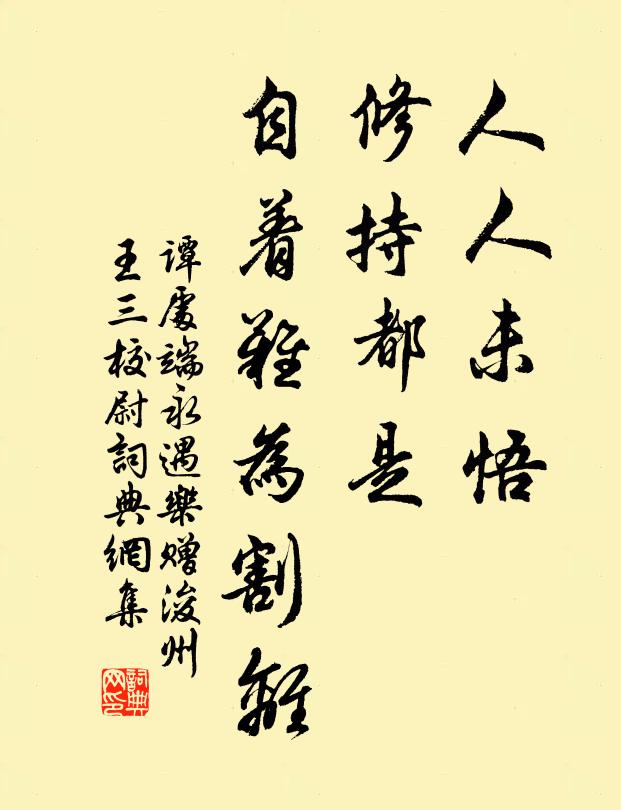 人人未悟
修持都是
自着難為割離
谭處端永遇樂赠浚州
王三校尉詞典網集
詞典网印